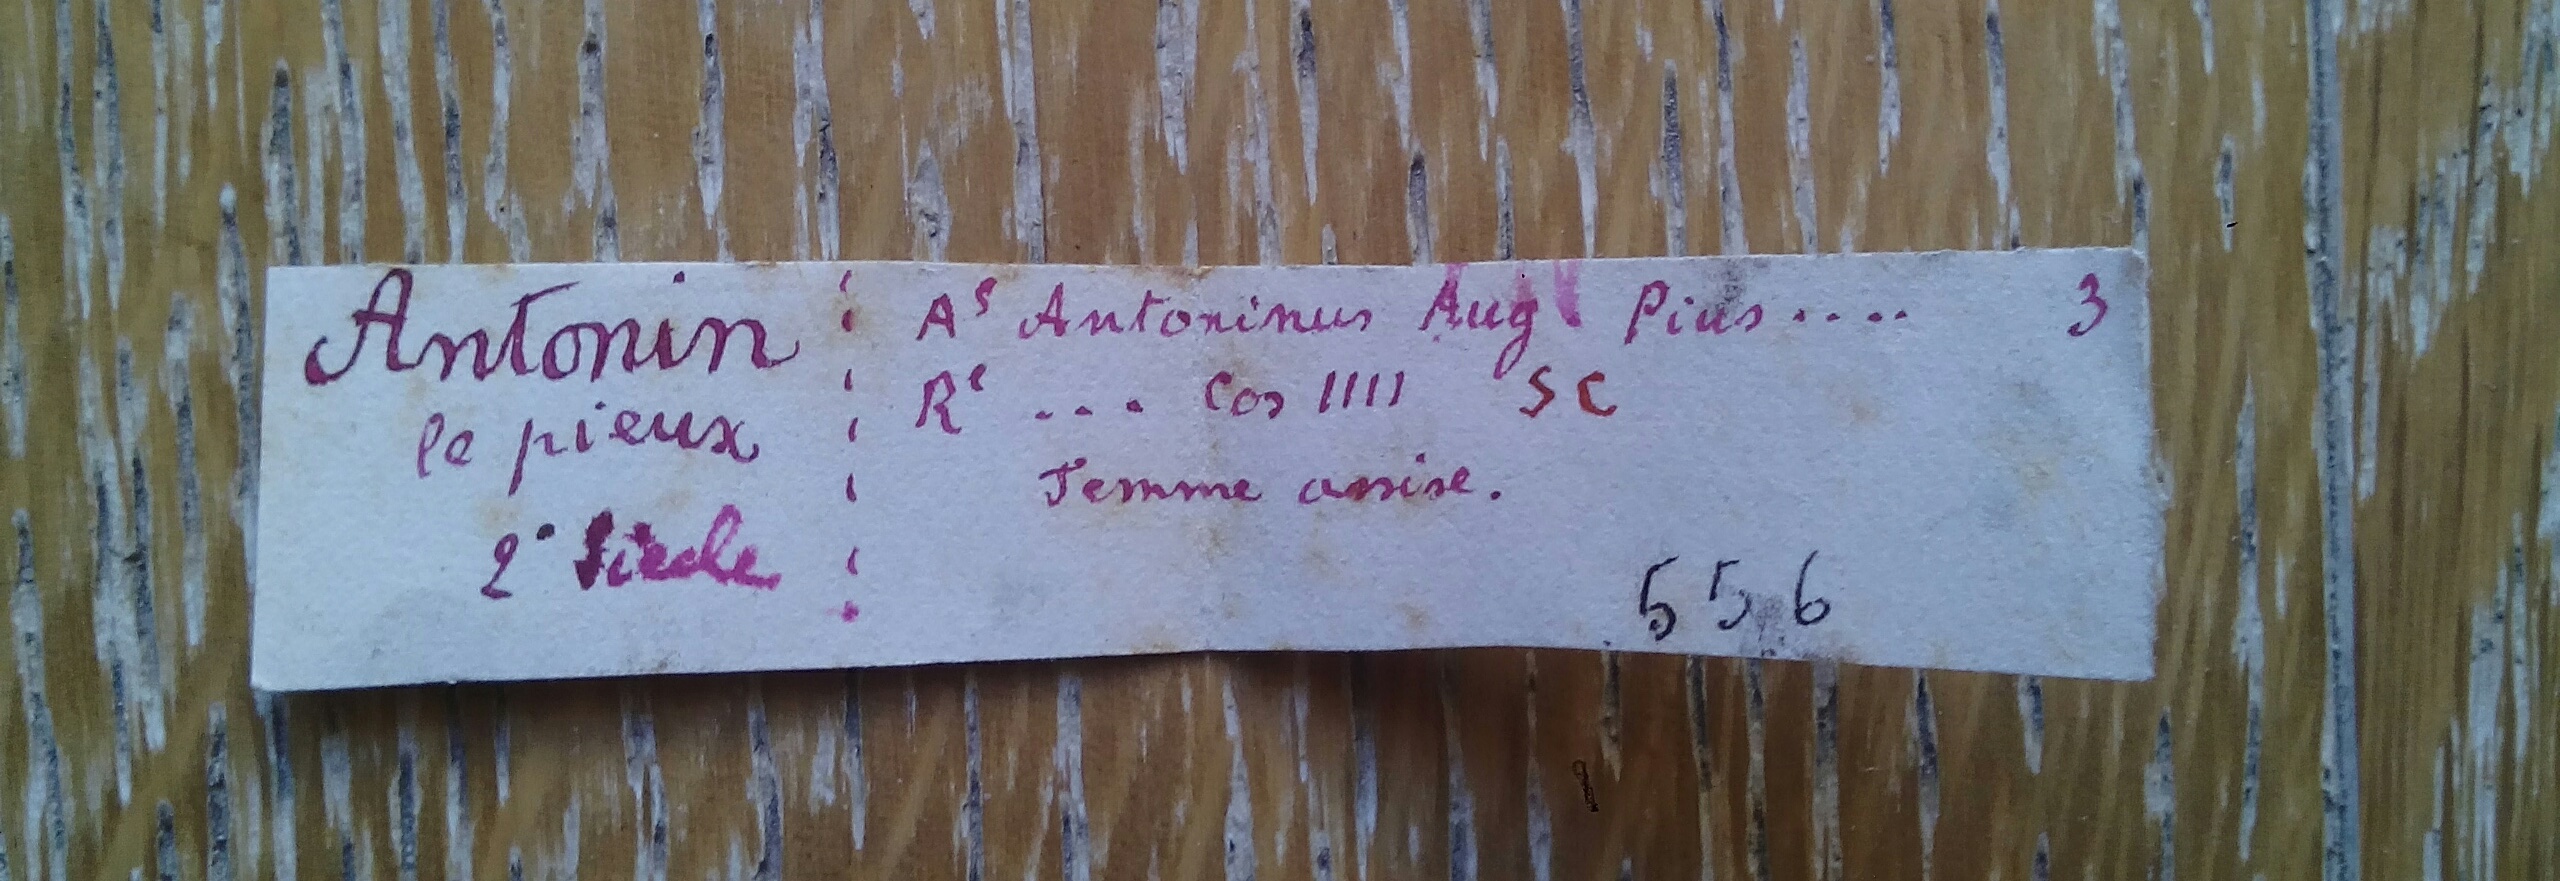 Antonin
le pieux
2e Siecle
As Antoninus Aug. Pius.... 3
Rs ... Cos IIII SC
Femme assise.
556